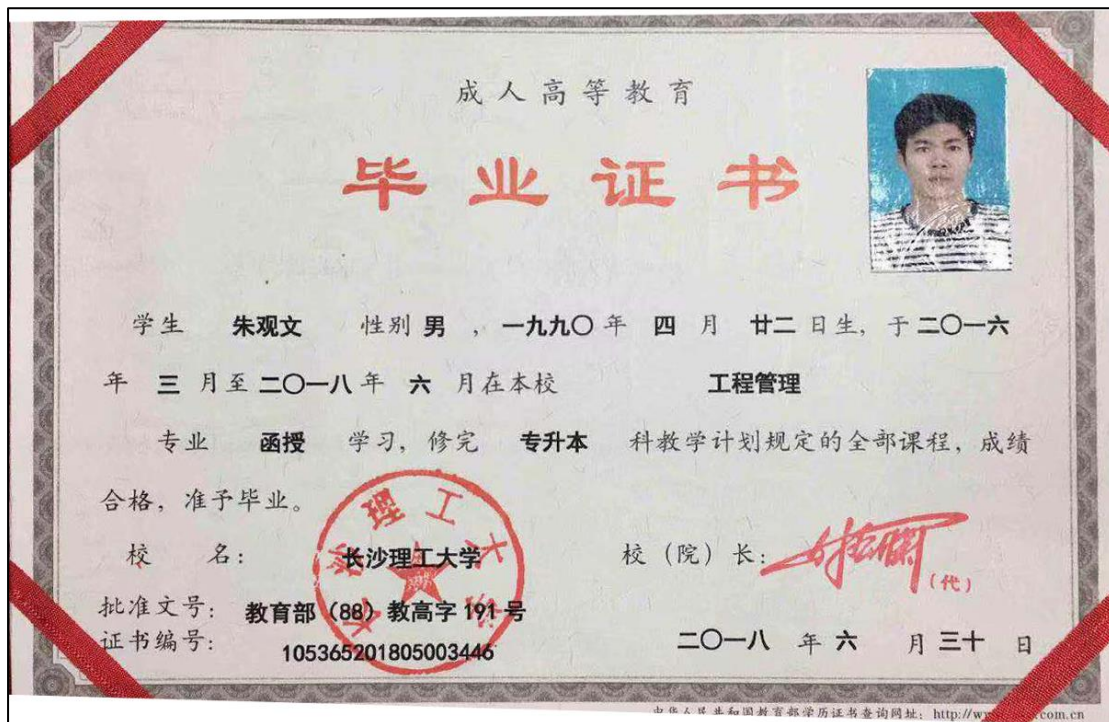 成人高等教育
毕业证书
学生 朱观文 性别 男 , 一九九〇 年 四 月 廿二 日生, 于 二〇一六
年 三 月至 二〇一八 年 六 月在本校 工程管理
专业 函授 学习, 修完 专升本 科教学计划规定的全部课程, 成绩
合格, 准予毕业。
校 名: 长沙理工大学
校 (院) 长:
(代)
长沙理工大学
批准文号: 教育部 (88) 教高字 191 号
证书编号: 105365201805003446
二〇一八 年 六 月 三十 日
中华人民共和国教育部学历证书查询网址: http://w com.cn